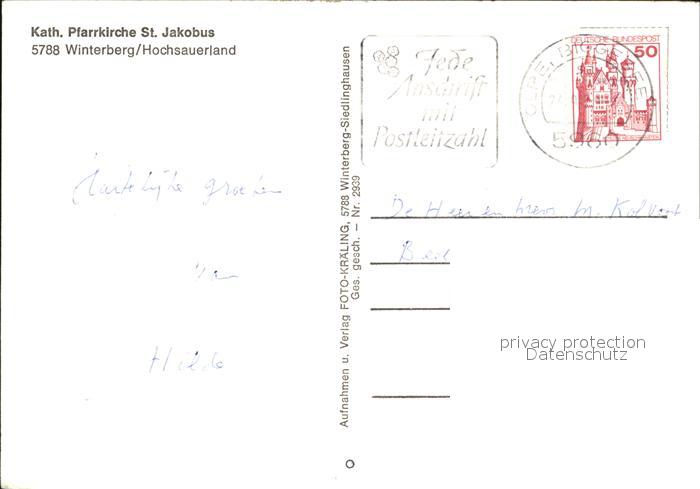 Kath. Pfarrkirche St. Jakobus
5788 Winterberg/Hochsauerland
Jede
Anschrift
mit
Postleitzahl
DEUTSCHE BUNDESPOST
50
OLPE, BIGGESEE
5960
Hartelijke groeten
van
Hilde
Aufnahmen u. Verlag FOTO-KRÄLING, 5788 Winterberg-Siedlinghausen
Ges. gesch. — Nr. 2939
De Heer en Mevr. M.
privacy protection
Datenschutz